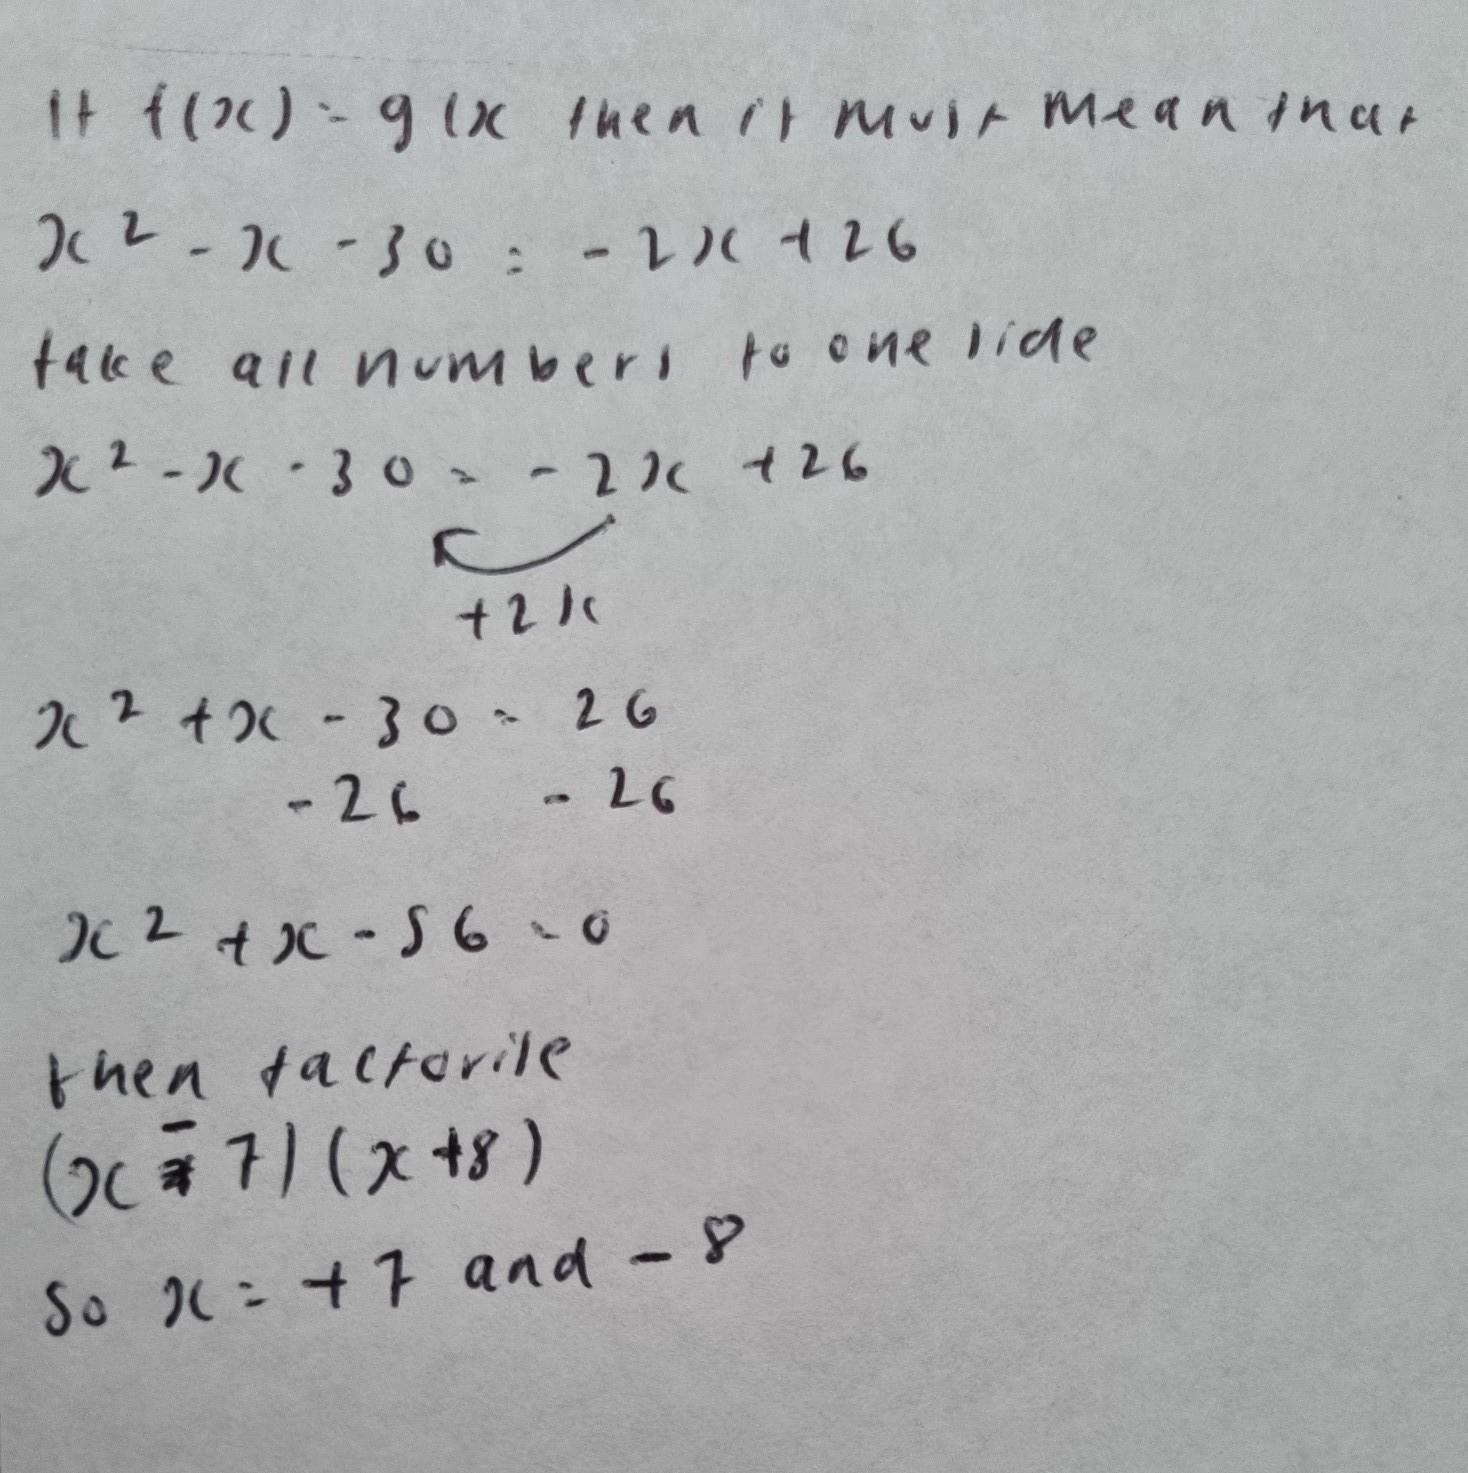 If f(x) = g(x then it must mean that
x² - x - 30 = -2x + 26
take all numbers to one side
x² - x - 30 = -2x + 26
+2x
x² + x - 30 = 26
-26 -26
x² + x - 56 = 0
then factorise
(x - 7)(x + 8)
So x = +7 and -8